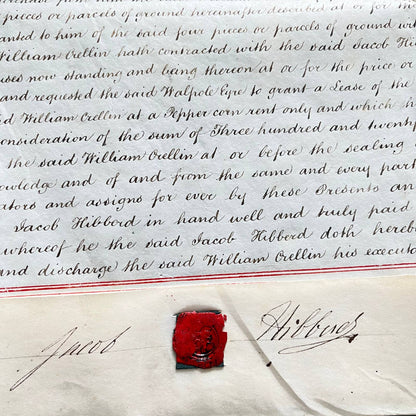 pieces or parcels of ground hereinafter described at or for the
anted to him of the said four pieces or parcels of ground wi
William Crellin hath contracted with the said Jacob Hib
uses now standing and being thereon at or for the price or
and requested the said Walpole Eyre to grant a Lease of the
d William Crellin at a Pepper corn rent only and which th
onsideration of the sum of Three hundred and twenty
the said William Crellin at or before the sealing
owledge and of and from the same and every part
ators and assigns for ever by these Presents an
Jacob Hibberd in hand well and truly paid
whereof he the said Jacob Hibberd doth hereb
and discharge the said William Crellin his execut
Jacob Hibberd